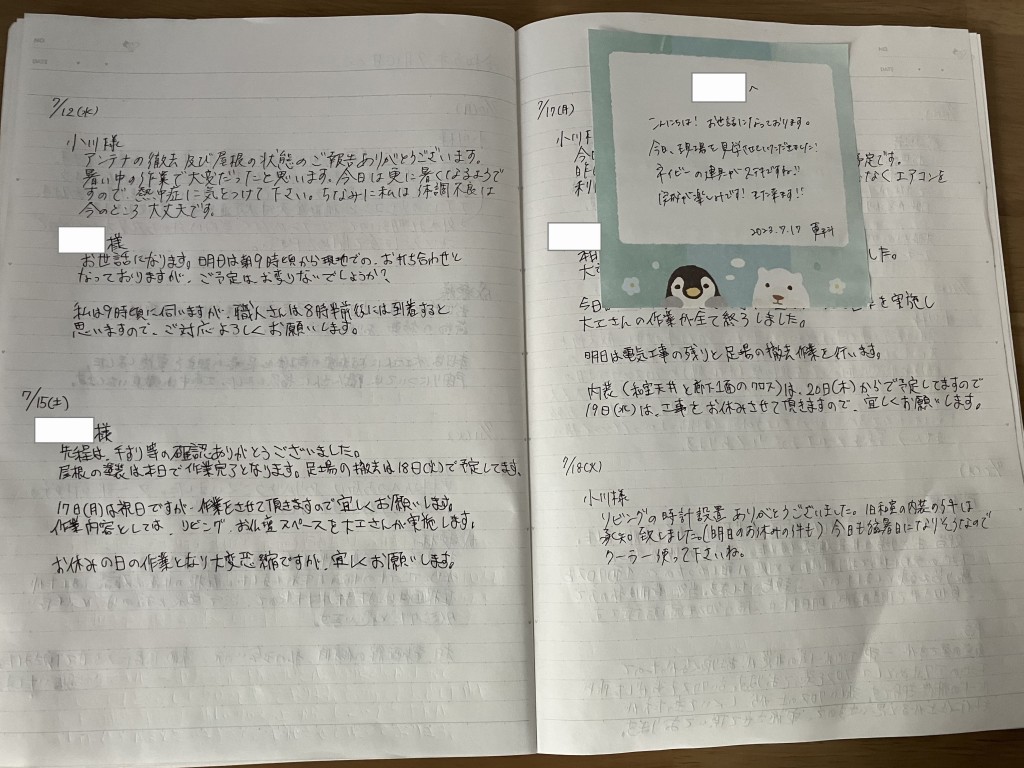 7/12(水)
小川様
アンテナの撤去及び屋根の状態のご報告ありがとうございます。
暑い中の作業で大変だったと思います。今日は更に暑くなるようで
すので、熱中症に気をつけて下さい。ちなみに私は体調不良は
今のところ大丈夫です。
様
お世話になります。明日は朝9時頃から現地での、お打ち合わせと
なっておりますが、ご予定は、お変りないでしょうか?
私は9時頃に伺いますが、職人さんは8時半前後には到着すると
思いますので、ご対応よろしくお願いします。
7/15(土)
様
先程は、手すり等の確認ありがとうございました。
屋根の塗装は本日で作業完了となります。足場の撤去は18日(火)で予定してます。
17日(月)は祝日ですが、作業をさせて頂きますので宜しくお願いします。
作業内容としては、リビング、お仏壇スペースを大工さんが実施します。
お休みの日の作業となり大変恐縮ですが、宜しくお願いします。
7/17(月)
小川
今
予定です。
昨
なくエアコンを
利
へ
こんにちは! お世話になっております。
今日、現場を見学させていただきました!
ネイビーの建具がステキですね!!
完成が楽しみです! また来ます!!
2023.7.17
本
した。
大
今日
を実施し
大工さんの作業が全て終了しました。
明日は電気工事の残りと足場の撤去作業を行います。
内装(和室天井と廊下1面のクロス)は、20日(木)からで予定してますので
19日(水)は、工事をお休みさせて頂きますので、宜しくお願いします。
7/18(火)
小川様
リビングの時計設置ありがとうございました。旧和室の内装の件は
承知致しました。(明日のお休みの件も) 今日も猛暑日になりそうなので
クーラー使って下さいね。